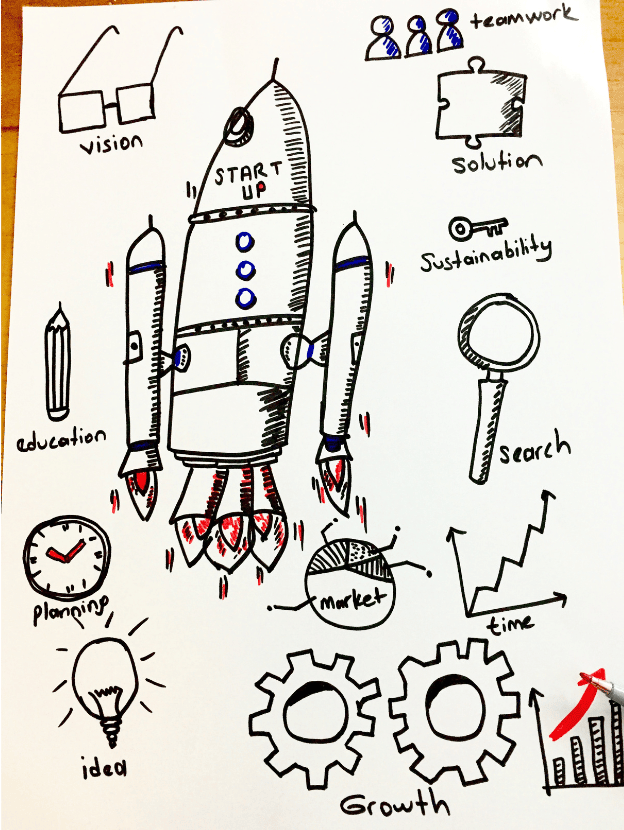 teamwork
vision
solution
START
UP
Sustainability
education
search
planning
market
time
idea
Growth